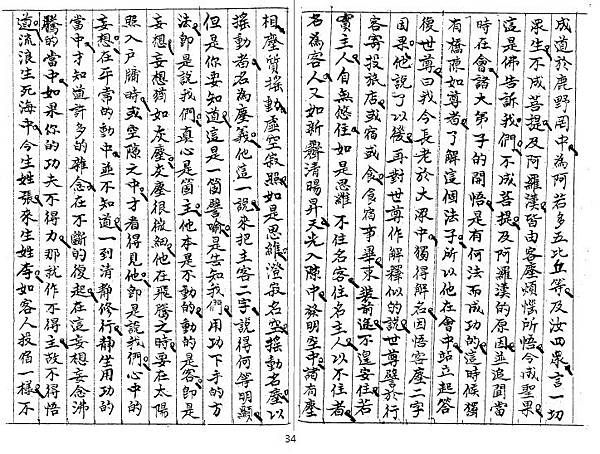 成道於鹿野园中為阿若多五比丘等及汝四眾言一切
眾生不成菩提及阿羅漢皆由客塵煩惱所悟今成聖果
這是佛告訴我們不成菩提及阿羅漢的原因並追聞當
時在會諸大弟子的開悟是有何法而成功的這時候獨
有橋陳如尊者了解這個法子所以他在會中站立起答
復世尊曰我今長老於大眾中獨得解名因悟客塵二字
因果他說了以後再對世尊作解釋似的說世尊譬於行
客寄投旅店或宿或食食宿事畢束裝前進不遑安住若
實主人自無悠住如是思維不住名客住名主人以不住者
名為客人又如新霽清暘昇天光入隙中發明空中諸有塵
相塵質搖動虛空寂照如是思維澄寂名空搖動名塵以
搖動者名為塵義他這一說來把主客二字說得何等明顯
但是你要知道這是一箇譬喻是告知我們用功下手的方
法即是說我們真心是箇主他本是不動的動的是客即是
妄想妄想猶如灰塵灰塵很微細他在飛騰之時要在太陽
照入戶牖時或空隙之中才看得見他即是說我們心中的
妄想在平常的動中並不知道一到清靜修行靜坐用功的
當中才知道許多的雜念在不斷的復起在這妄想妄念沸
騰的當中如果你的功夫不得力那就作不得主故不得悟
道流浪生死海中今生姓張來生姓李如客人投宿一樣不
34